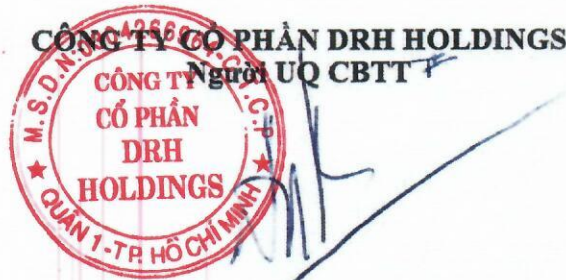 CÔNG TY CỔ PHẦN DRH HOLDINGS
Người UQ CBTT
CÔNG TY
CỔ PHẦN
DRH
HOLDINGS
QUẬN 1-TP. HỒ CHÍ MINH